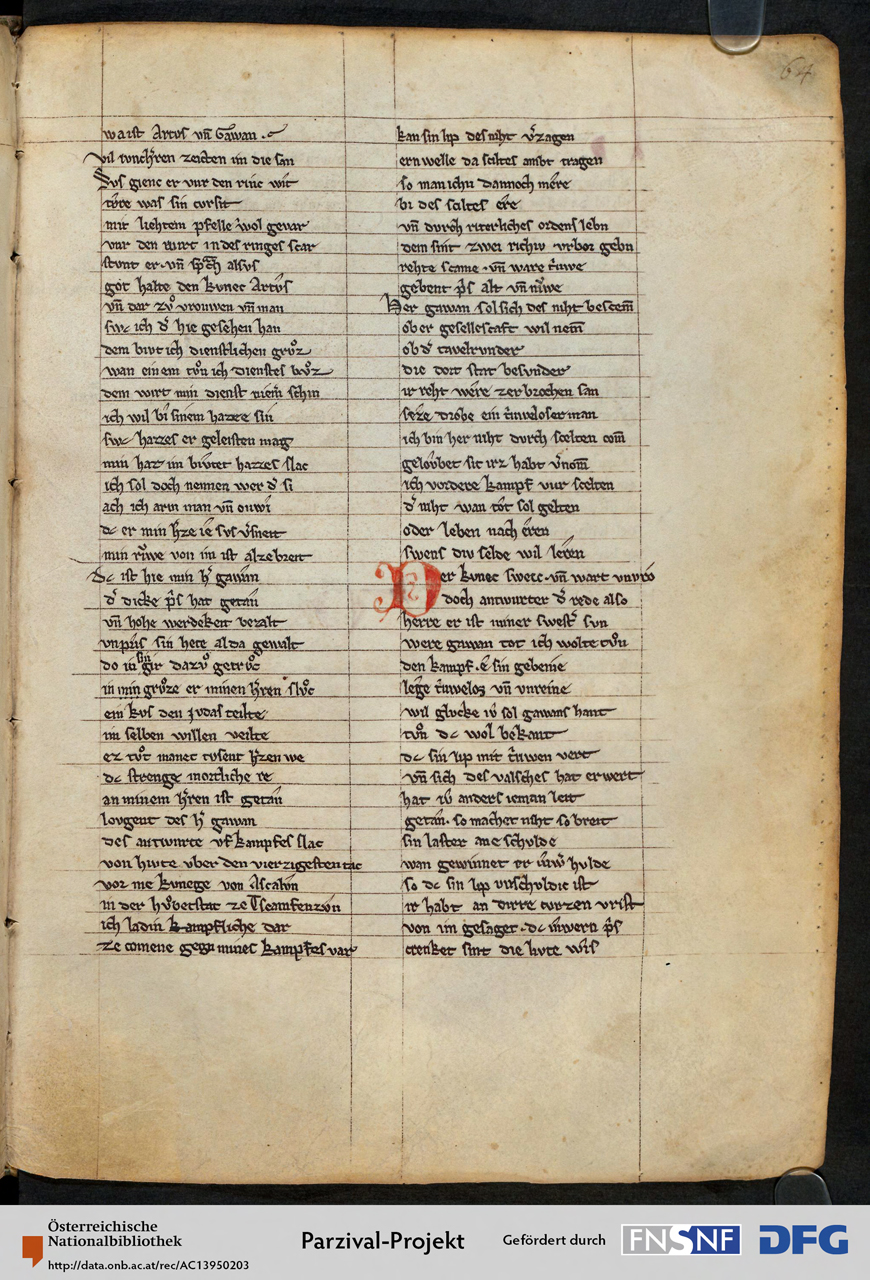 64
wa ist Artvs vn̄ Gawan
vil ivnch̄ren zeicten im die san
Svs gienc er vur den rinc wit
tv̂re was sin cursit
mit liehtem pfelle wol gevar
vur den wirt in des ringes scar
stvnt er · vn̄ sp̄ch alsvs
got halte den kvnec Artv̄s
vn̄ dar zvͦ vrouwen vn̄ man
swc ich d̄ hie gesehen han
dem bivt ich dienstlichen grvͦz
wan einem tvͦn ich dienstes bvͦz
dem wirt min dienst niem̄ schin
ich wil bi sinem hazze sin
swc hazzes er geleisten mag
min haz im bivtet hazzes slac
ich sol doch nennen wer d̄ si
ach ich arm man vn̄ ouwi
dc er min h̄ze ie svs v̄sneit
min rîwe von im ist alzebreit
dc ist hie min h̄ gawan
d̄ dicke p̄s hat getan
vn̄ hohe werdekeit bezalt
vnpris sin hete al da gewalt
do in sin gir dazvͦ getrvͦc
in min grvͦze er minen h̄ren slvͦc
ein kvs den jvdas teilte
im selben willen veilte
ez tvͦt manec tvsent h̄zen we
dc strenge mortliche re
an minem h̄ren ist getan
lovgent des h̄ gawan
des antwurte vf kampfes slac
von hivte vber den vierzigesten tac
vor me kvnege von Ascalon
in der hoͮbetstat ze Tscamfenzun
ich ladin kampfliche dar
ze comene gegn mines kampfes var
kan sin lip des niht v̄zagen
ern welle da sciltes ambt tragen
so man ichn dannoch mere
bi des sciltes ere
vn̄ dvrch riterliches ordens lebn
dem sint zwei richiv vrbor gebn
rehte scame · vn̄ ware t̄iwe
gebent p̄s alt vn̄ niwe
Her gawan sol sich des niht bescem̄
ob er gesellescaft wil nem̄
ob d̄ tavelrvnder
die dort stat besvnder
ir reht were zerbrochen san
seze drobe ein t̄iweloser man
ich bin her niht dvrch scelten com̄
geloͮbet sit irz habt v̄nom̄
ich vordere kampf vur scelten
d̄ niht wan tot sol gelten
oder leben nach eren
swens div selde wil leren
Der kvnec sweic · vn̄ wart vnvro
doch antwurter d̄ rede also
herre er ist miner swest̄ svn
were gawan tot ich wolte tvͦn
den kampf · e sin gebeine
lege t̄iwelos vn̄ vnreine
wil glvcke iv sol gawans hant
tvͦn dc wol bekant
dc sin lip mit t̄iwen vert
vn̄ sich des valsches hat erwert
hat iv anders ieman leit
getan · so machet niht so breit
sin laster ane schvlde
wan gewinnet er iw̄ hvlde
so dc sin lip vnschvldic ist
ir habt an dirre cvrzen vrist
von im gesaget · dc iuwern p̄s
crenket sint die livte wis
Österreichische
Nationalbibliothek
http://data.onb.ac.at/rec/AC13950203
Parzival-Projekt
Gefördert durch
FNSNF
DFG